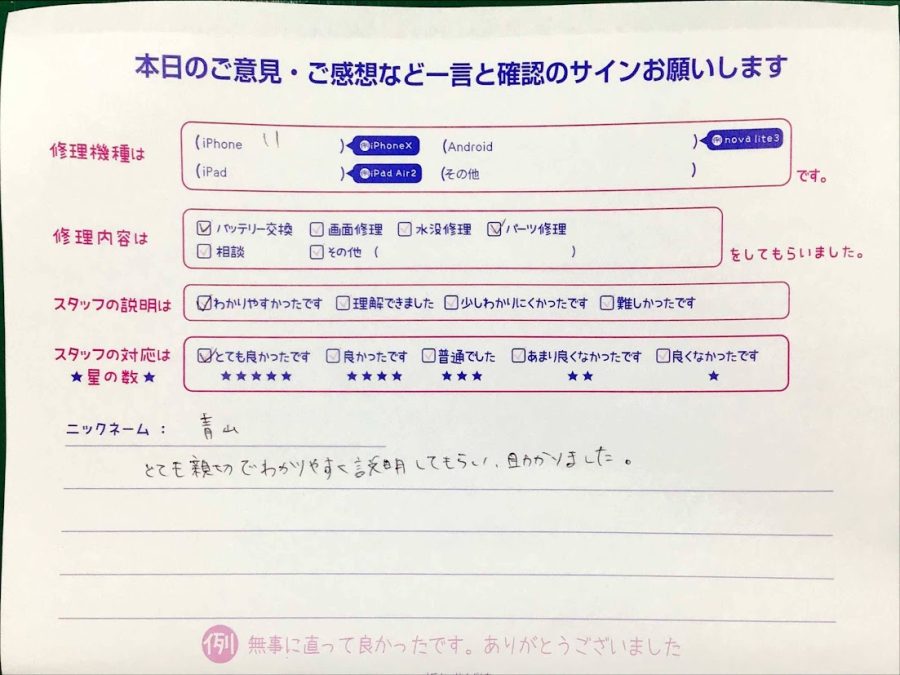 本日のご意見・ご感想など一言と確認のサインお願いします
修理機種は
(iPhone 11 ) 例iPhoneX (Android ) 例nova lite3
(iPad ) 例iPad Air2 (その他 ) です。
修理内容は
バッテリー交換 画面修理 水没修理 パーツ修理
相談 その他 ( ) をしてもらいました。
スタッフの説明は わかりやすかったです 理解できました 少しわかりにくかったです 難しかったです
スタッフの対応は とても良かったです 良かったです 普通でした あまり良くなかったです 良くなかったです
★星の数★ ★★★★★ ★★★★ ★★★ ★★ ★
ニックネーム： 青山
とても親切でわかりやすく説明してもらい、助かりました。
例 無事に直って良かったです。ありがとうございました